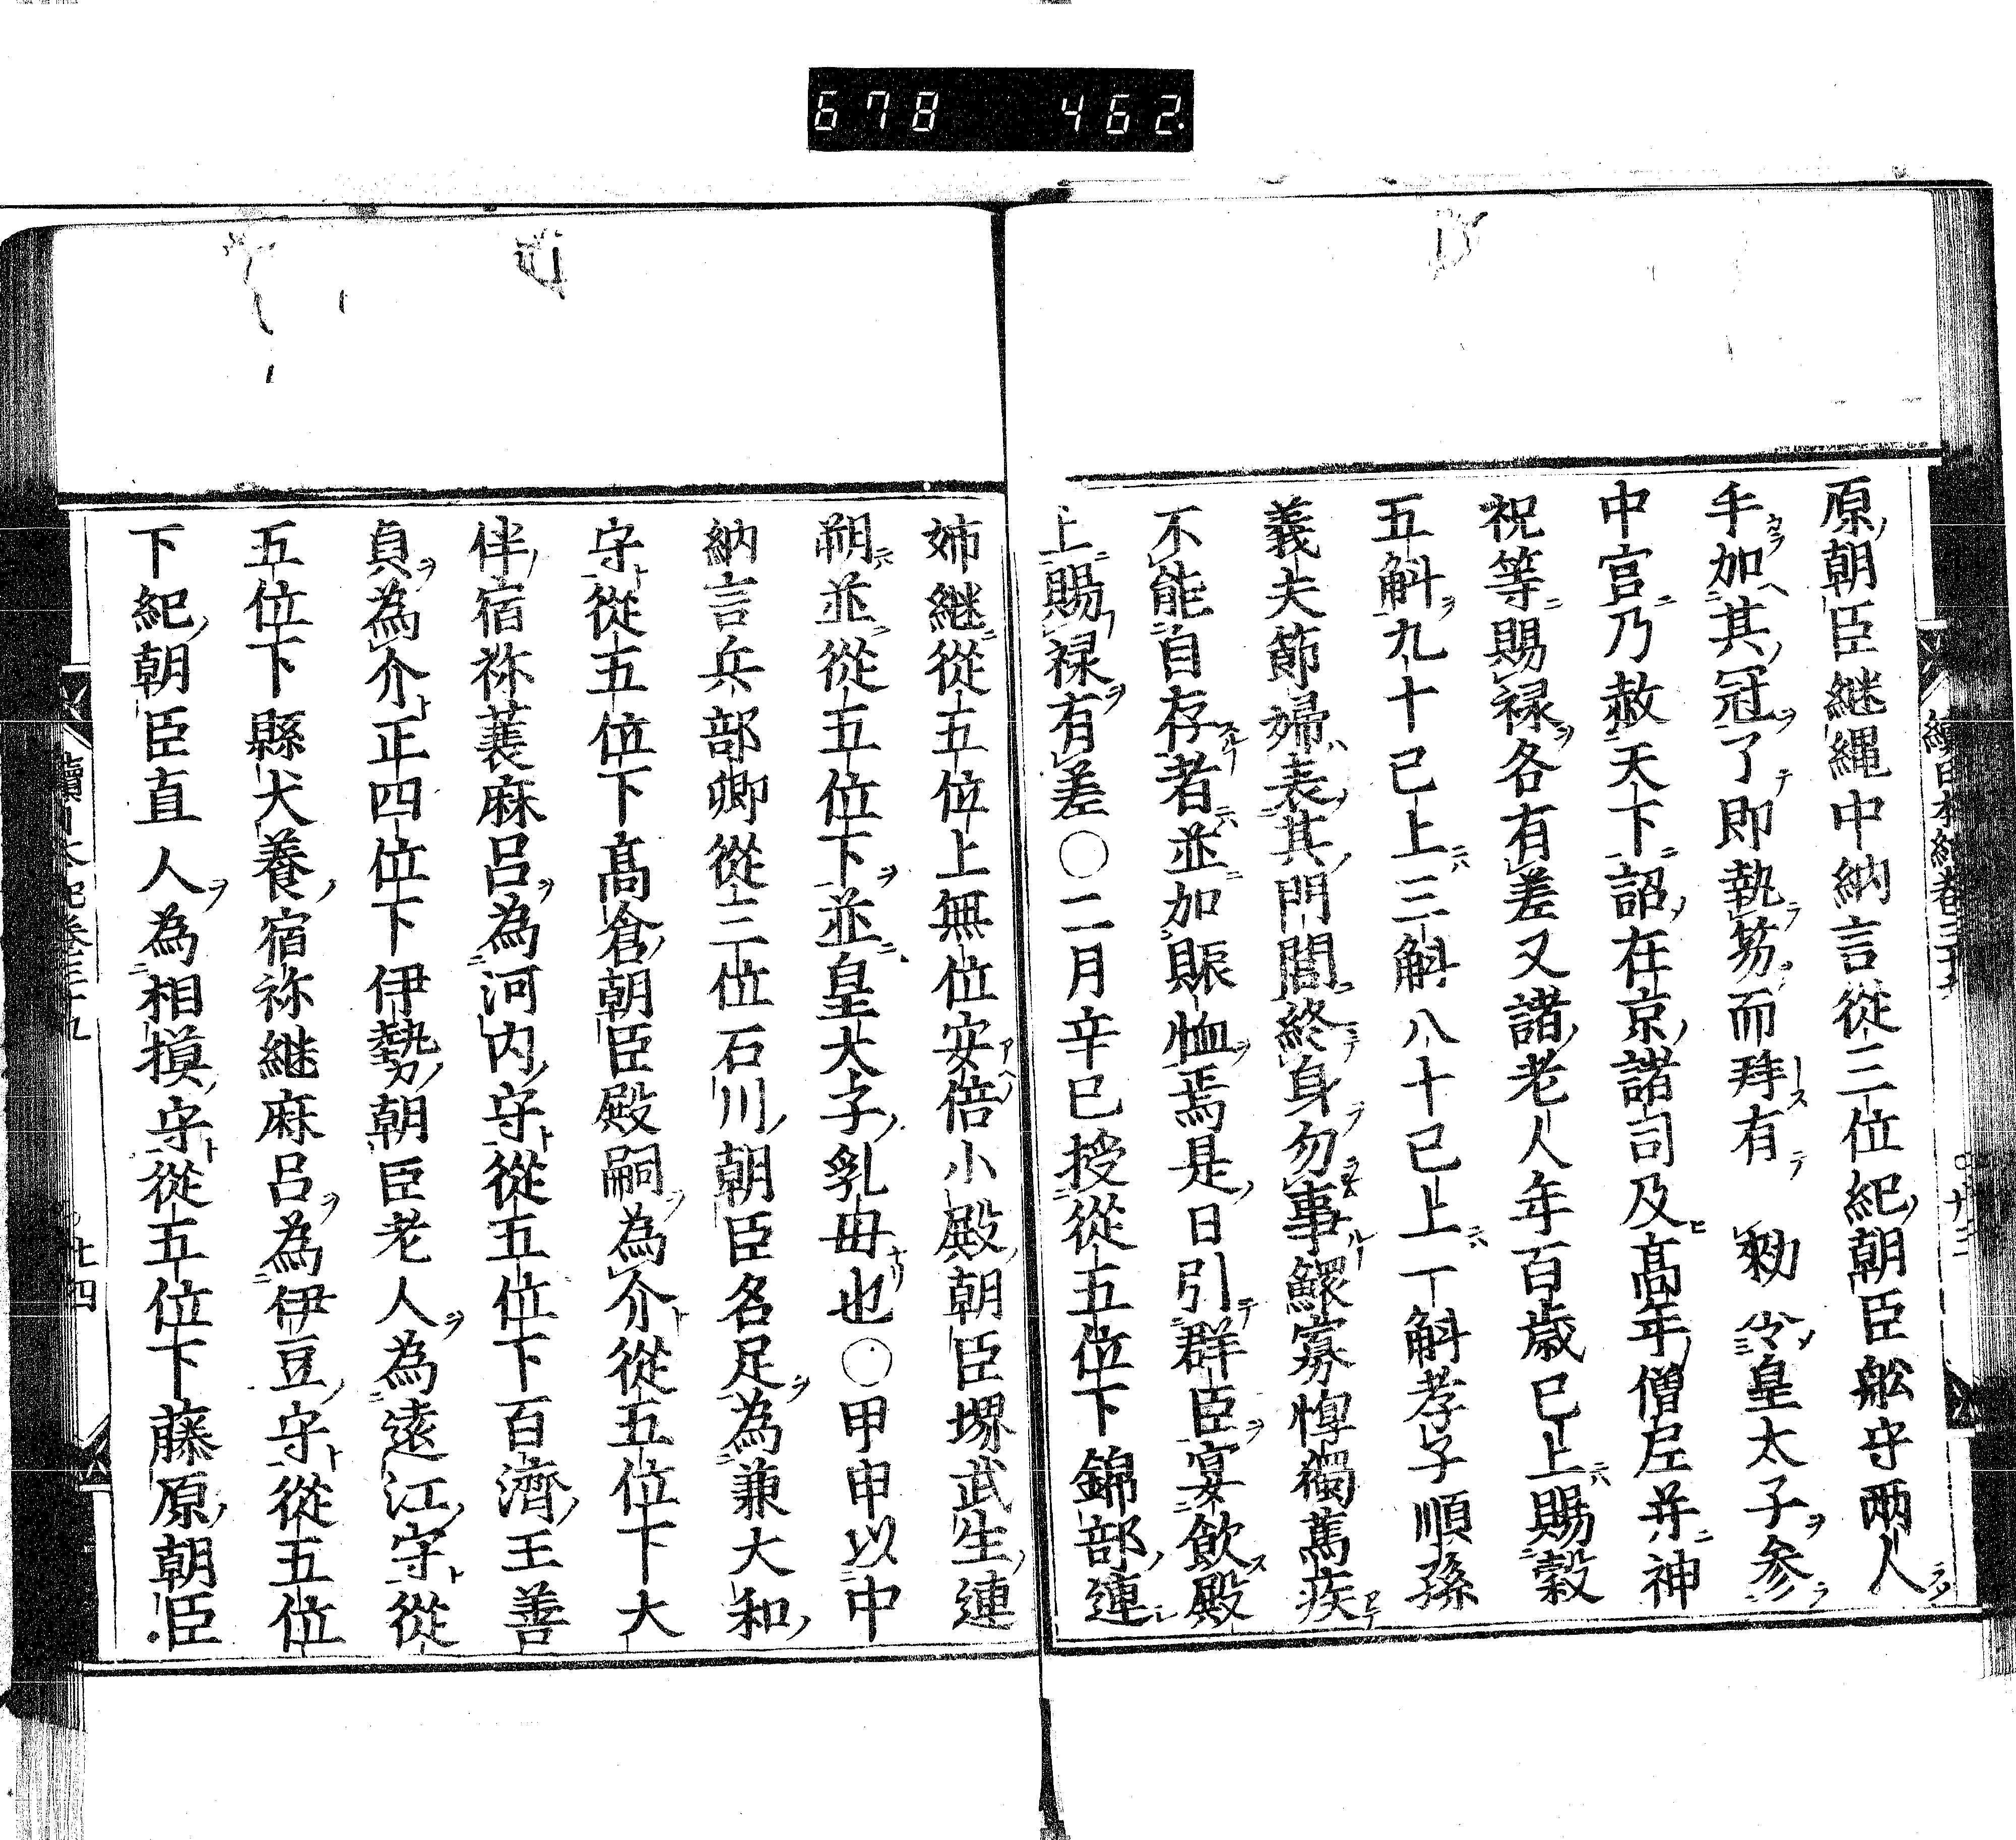 678 462
原朝臣継縄中納言從三位紀朝臣舩守两人
手加其冠了即執笏而拜有 勅令皇太子参
中宮乃赦天下詔在京諸司及髙年僧尼并神
祝等賜禄各有差又諸老人年百歳已上賜穀
五斛九十已上三斛八十已上一斛孝子順孫
義夫節婦表其門閭終身勿事鰥寡惸獨篤疾
不能自存者並加賑恤焉是日引群臣宴飲殿
上賜禄有差〇二月辛巳授從五位下錦部連
姉継從五位上無位安倍小殿朝臣堺武生連
朔並從五位下並皇太子乳母也〇甲申以中
納言兵部卿從三位石川朝臣名足為兼大和
守從五位下髙倉朝臣殿嗣為介從五位下大
伴宿祢蓑麻呂為河内守從五位下百濟王善
貞為介正四位下伊勢朝臣老人為遠江守從
五位下縣犬養宿祢継麻呂為伊豆守從五位
下紀朝臣直人為相摸守從五位下藤原朝臣